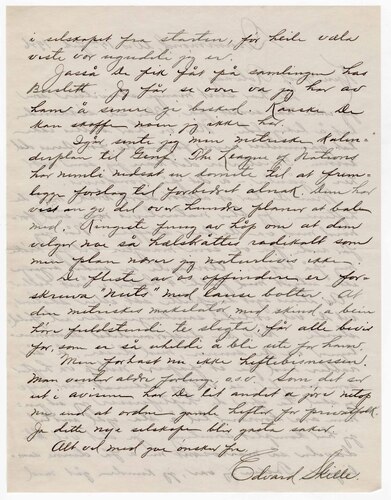 i selskapet fra starten, for heile væla
viste vor ugudele jeg er.
Jasså De fik fåt på samlingen has
Buslett. Jeg får se over va jeg har av
ham å senere gi besked. Kanske De
kan skaffe noen jeg ikke har.
Igår sente jeg min metriske kalen-
derplan til Genf. The League of Nations
har nemli nedsat en komite til at frem-
legge forslag til forbedret alnak. Den har
vist an ge del over hundre planer at bale
med. Ringeste fnug av håp om at dem
velger noe så halsbrækker radikalt som
min plan nærer jeg naturligvis ikke.
De fleste av os opfindere er for-
skruva "nuts" med lause bolter. At
den metriske makelator, med skind å ben
hører fuldstendi te slegta, får alle bevis
for, som er så uheldi å bli ute for ham.
Men forhast nu ikke heftebisnessen.
Man venter aldri forlenge, o.s.v. Som det ser
ut i avisene har De litt andet å jøre netop
nu end at ordne gamle hefter for privatfolk
Ja dette nye selskapet blir gaste saker.
Alt vel med gve ønsker fra
Edvard Skille.